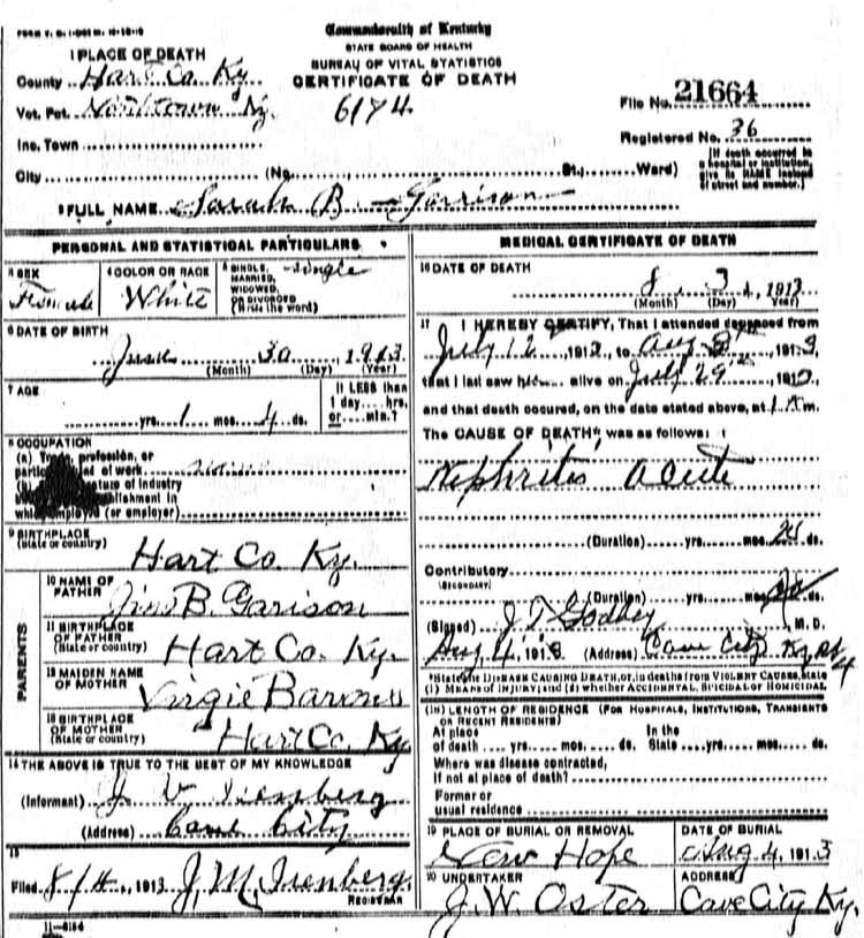 Commonwealth of Kentucky
STATE BOARD OF HEALTH
BUREAU OF VITAL STATISTICS
CERTIFICATE OF DEATH
6174
1 PLACE OF DEATH
County Hart Co. Ky.
Vot. Pct. Ky.
Inc. Town
City (No. St., Ward)
File No. 21664
Registered No. 36
[If death occurred in a hospital or institution, give its NAME instead of street and number.]
2 FULL NAME Sarah B. Garrison
PERSONAL AND STATISTICAL PARTICULARS
3 SEX
Female
4 COLOR OR RACE
White
5 SINGLE, MARRIED, WIDOWED, OR DIVORCED (Write the word)
Single
6 DATE OF BIRTH
June 30 1913
(Month) (Day) (Year)
7 AGE
yrs. 1 mos. 4 ds.
If LESS than 1 day.... hrs. or.... min.?
8 OCCUPATION
(a) Trade, profession, or
particular kind of work
(b) nature of industry
establishment in
which employed (or employer)
9 BIRTHPLACE
(State or country) Hart Co Ky.
PARENTS
10 NAME OF FATHER
Jim B. Garison
11 BIRTHPLACE OF FATHER
(State or country) Hart Co. Ky.
12 MAIDEN NAME OF MOTHER
Virgie
13 BIRTHPLACE OF MOTHER
(State or country) Hart Co. Ky
14 THE ABOVE IS TRUE TO THE BEST OF MY KNOWLEDGE
(Informant) J
(Address) Cave City
15
Filed 8/4, 1913 J. M. Isenberg.
REGISTRAR
11-6184
MEDICAL CERTIFICATE OF DEATH
16 DATE OF DEATH
8. 3, 1913
(Month) (Day) (Year)
17 I HEREBY CERTIFY, That I attended deceased from
July 12, 1913, to Aug, 1913,
that I last saw h alive on July 29th, 191
and that death occured, on the date stated above, at 1 m.
The CAUSE OF DEATH* was as follows:
Nephritis acute
(Duration) yrs. mos. ds.
Contributory
(SECONDARY)
(Duration) yrs. mos. ds.
(Signed) J T Godbey, M. D.
Aug, 4, 1913. (Address) Cave City Ky
*State the DISEASE CAUSING DEATH, or, in deaths from VIOLENT CAUSES, state
(1) MEANS OF INJURY; and (2) whether ACCIDENTAL, SUICIDAL or HOMICIDAL
(18) LENGTH OF RESIDENCE (FOR HOSPITALS, INSTITUTIONS, TRANSIENTS
OR RECENT RESIDENTS)
At place In the
of death.... yrs..... mos..... ds. State....yrs..... mos..... ds.
Where was disease contracted,
if not at place of death?
Former or
usual residence
19 PLACE OF BURIAL OR REMOVAL
New Hope
DATE OF BURIAL
Aug 4, 1913
20 UNDERTAKER
J. W. Oster
ADDRESS
Cave City Ky.